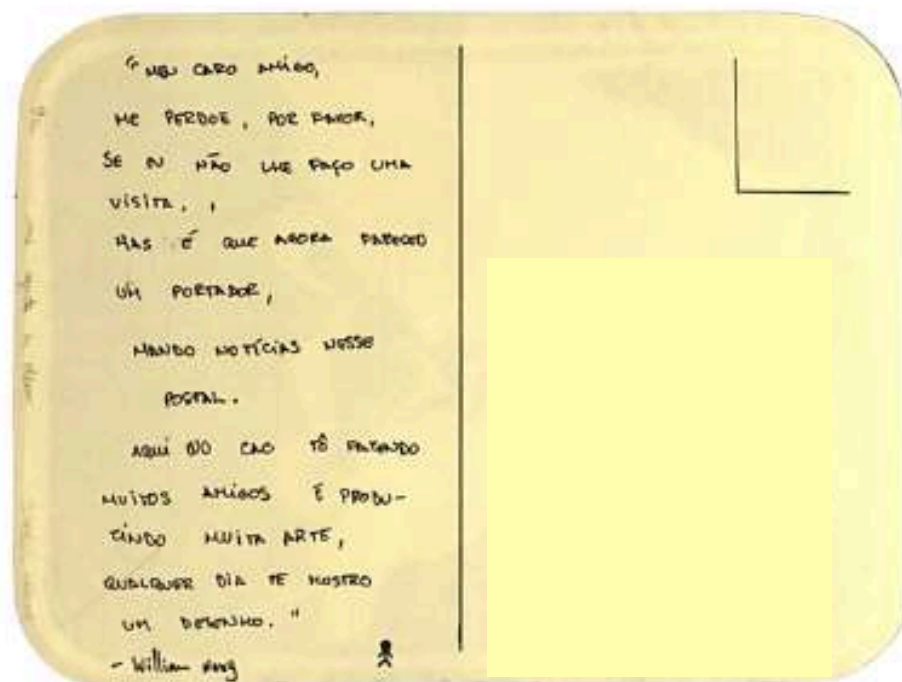 "MEU CARO AMIGO,
ME PERDOE, POR FAVOR,
SE EU NÃO LHE FAÇO UMA
VISITA, ,
MAS É QUE AGORA APARECEU
UM PORTADOR,
MANDO NOTÍCIAS NESSE
POSTAL.
AQUI NO CAO TÔ FAZENDO
MUITOS AMIGOS E PRODU-
ZINDO MUITA ARTE,
QUALQUER DIA TE MOSTRO
UM DESENHO."
- William